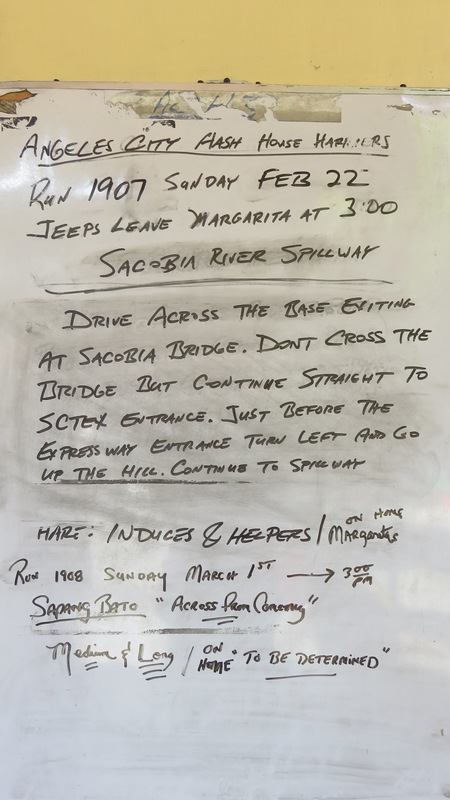 ANGELES CITY HASH HOUSE HARRIERS
RUN 1907 SUNDAY FEB 22
JEEPS LEAVE MARGARITA AT 3:00
SACOBIA RIVER SPILLWAY
DRIVE ACROSS THE BASE EXITING
AT SACOBIA BRIDGE. DONT CROSS THE
BRIDGE BUT CONTINUE STRAIGHT TO
SCTEX ENTRANCE. JUST BEFORE THE
EXPRESSWAY ENTRANCE TURN LEFT AND GO
UP THE HILL. CONTINUE TO SPILLWAY
HARE: INDUCES & HELPERS / ON HOME MARGARITAS
RUN 1908 SUNDAY MARCH 1ST → 3:00 PM
SAPANG BATO "ACROSS FROM CEMETERY"
Medium & Long / ON HOME "TO BE DETERMINED"